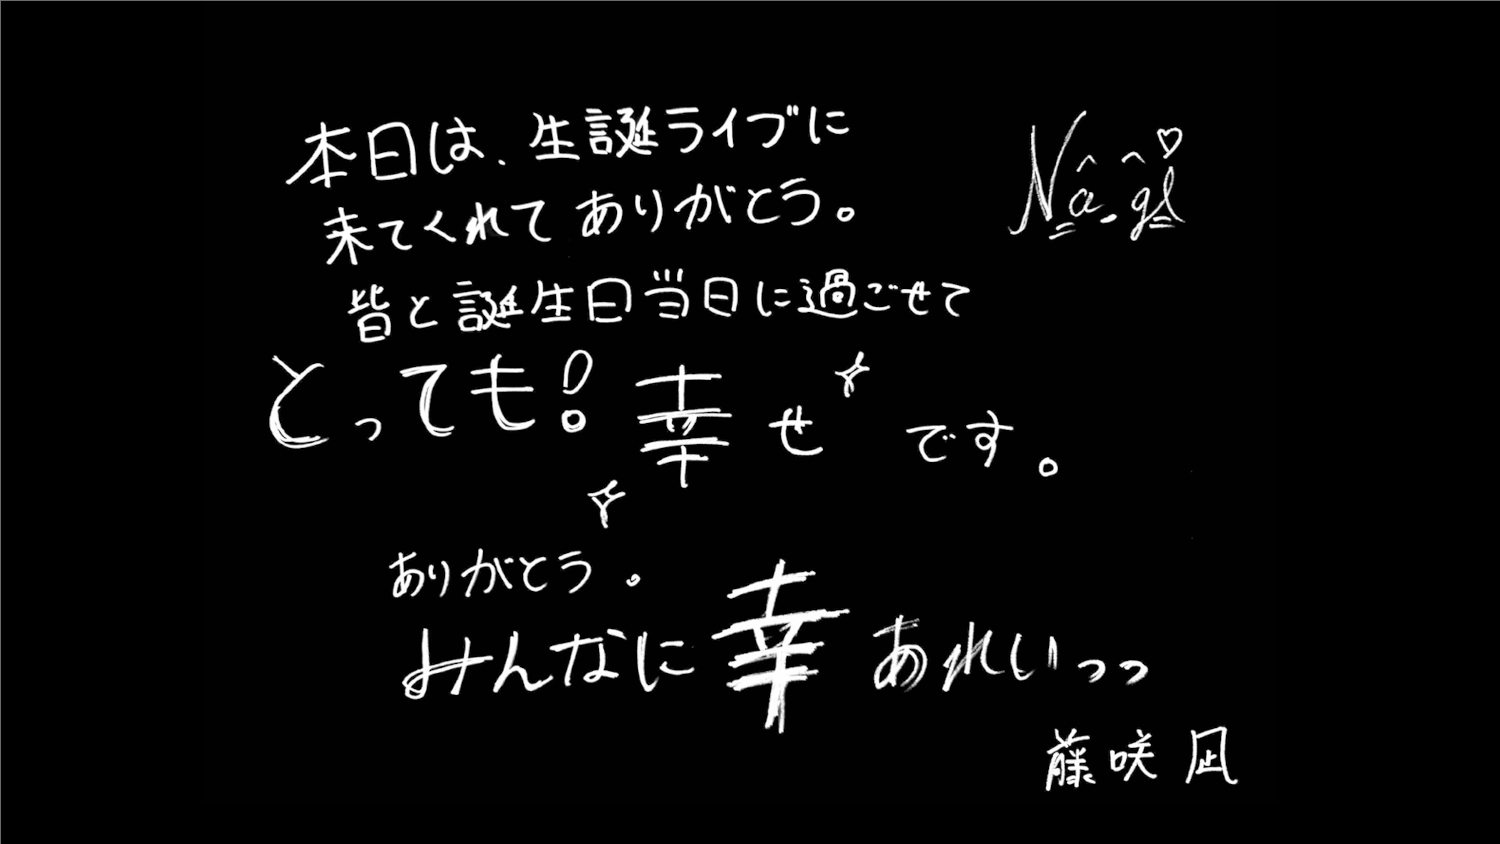 本日は、生誕ライブに
Nagi
来てくれてありがとう。
皆と誕生日当日に過ごせて
とっても!幸せです。
ありがとう。
みんなに幸あれいっっ
藤咲凪